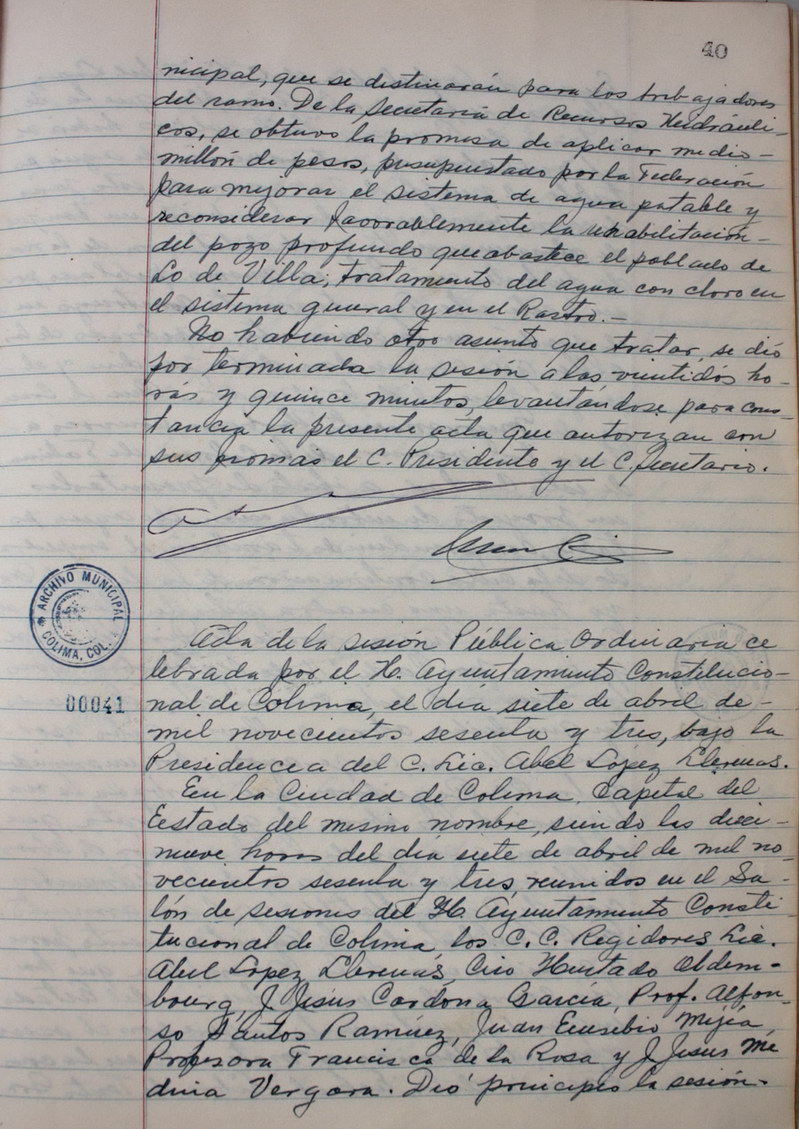 40
nicipal, que se distinarán para los trabajadores
del ramo. De la Secretaría de Recursos Hidráuli-
cos, se obtuvo la promesa de aplicar medio-
millón de pesos, presupuestado por la Federación
para mejorar el sistema de agua potable y
reconsiderar favorablemente la rehabilitación-
del pozo profundo que abastece el poblado de
Lo de Villa; tratamiento del agua con cloro en
el sistema general y en el Rastro.-
No habiendo otro asunto que tratar, se dió
por terminada la sesión a las veintidós ho-
ras y quince minutos, levantándose para cons-
tancia la presente acta que autorizan con
sus firmas el C. Presidente y el C. Secretario.
ARCHIVO MUNICIPAL
COLIMA, COL.
00041
Acta de la sesión Pública Ordinaria ce
lebrada por el H. Ayuntamiento Constitucio-
nal de Colima, el día siete de abril de-
mil novecientos sesenta y tres, bajo la
Presidencia del C. Lic. Abel López Llerenas.
En la Ciudad de Colima, Capital del
Estado del mismo nombre, siendo las dieci-
nueve horas del día siete de abril de mil no-
vecientos sesenta y tres, reunidos en el Sa-
lón de sesiones del H. Ayuntamiento Consti-
tucional de Colima los C. C. Regidores Lic.
Abel López Llerenas, Ciro Hurtado Oldem-
bourg, J. Jesús Cardona García, Prof. Alfon-
so Santos Ramírez, Juan Eusebio Mejía,
Profesora Francisca de la Rosa y J. Jesús Me
dina Vergara. Dió principio la sesión-